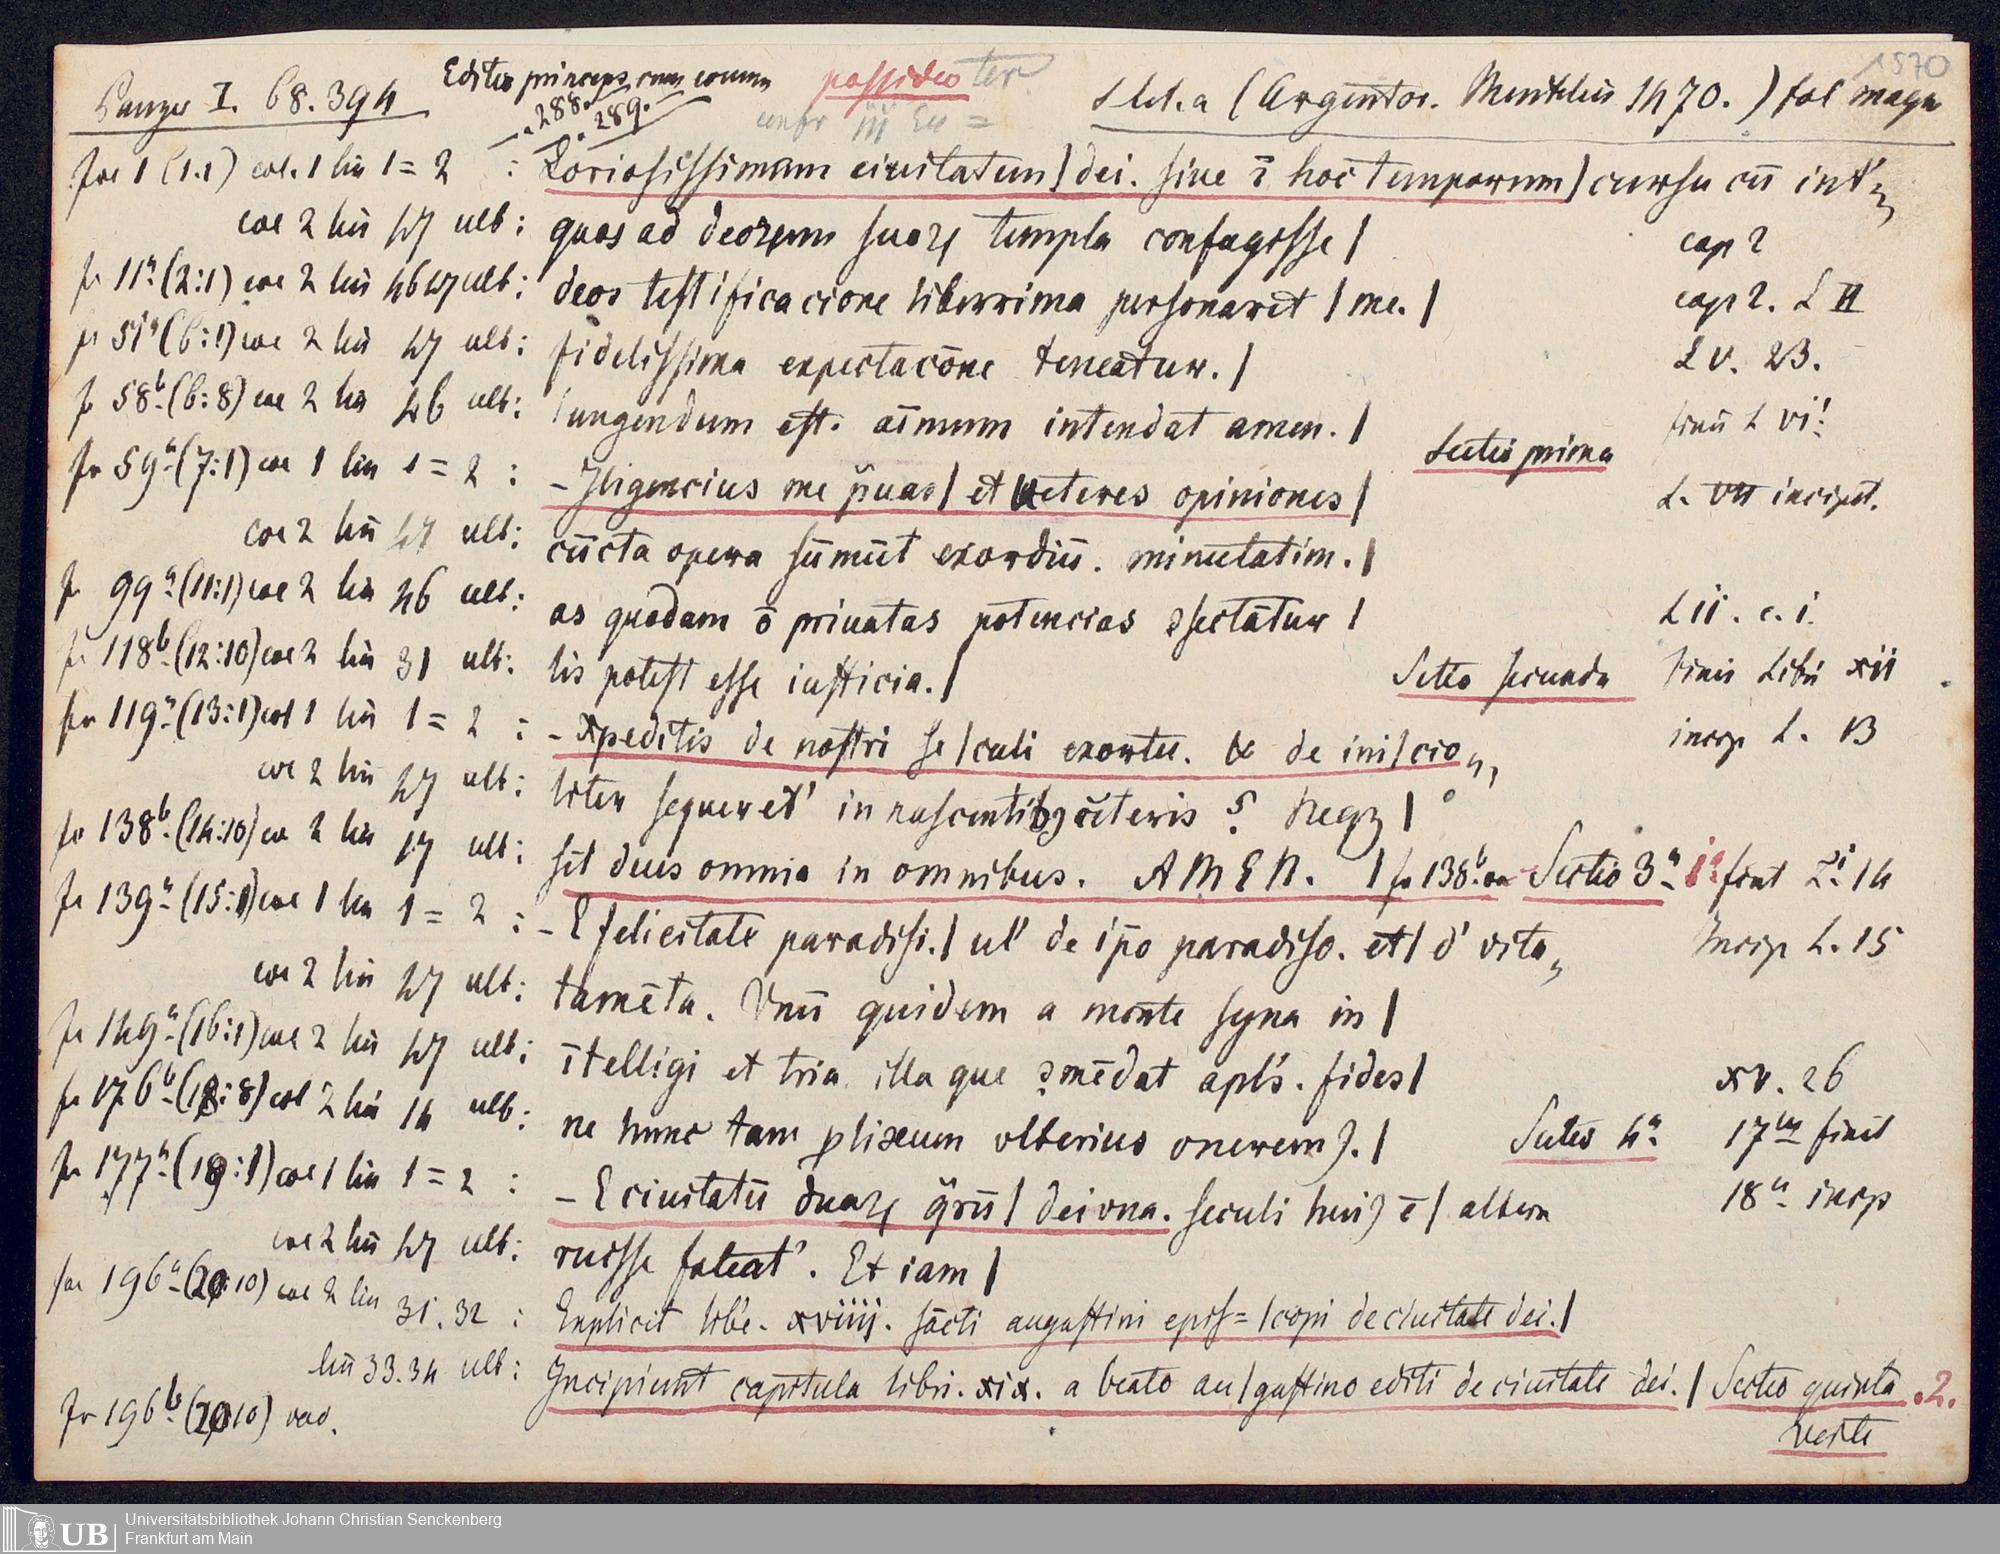 Panzer I. 68.394 Editio princeps cum comm possideo ter s.l.et.a (Argentor. Mentelin 1470.) fol magn 1570
288. 289.
fol 1 (1.1) col. 1 lin 1=2 : Loriosissimam ciuitatem/ dei. siue ī hoc temporum/ cursu cū int'
col 2 lin 47 ult: quos ad deorum suoꝝ templa confugisse /
cap 2
fo 11ª (2:1) col 2 lin 46 47 ult: deos testificacione liberrima personaret / me. / cap 2. L II
fo 51ª (6:1) col 2 lin 47 ult: fidelissima expectacōne teneatur. / L V. 23.
fo 58ᵇ (6:8) col 2 lin 46 ult: iungendum est. aīmum intendat amen. / finit L VI:
Sectio prima
fo 59ª (7:1) col 1 lin 1=2 : -Iligencius me p̄uas/ et ueteres opiniones / L. VII incipit.
col 2 lin 47 ult: cūcta opera sūmūt exordiū. minutatim. /
fo 99ª (11:1) col 2 lin 46 ult: as quodam ō priuatas potencias ꝯsectātur / L ii. c. i.
fo 118ᵇ (12:10) col 2 lin 31 ult: lis potest esse iusticia. / Sectio secunda Finis Libri xii
fo 119ª (13:1) col 1 lin 1=2 : -xpeditis de nostri se/culi exortu. & de ini/cio incip L. 13
col 2 lin 47 ult: liter sequeret' in nascentibꝫ cēteris ? Neqꝫ /
fo 138ᵇ (14:10) col 2 lin 47 ult: sit deus omnia in omnibus. AMEN. / fo 138ᵇ Sectio 3ª finit L 14
fo 139ª (15:1) col 1 lin 1=2 : -E felicitate paradisi./ ul' de ip̄o paradiso. et/ d' vita Incip L. 15
col 2 lin 47 ult: tamēta. Vnū quidem a monte syna in /
fo 149ª (16:1) col 2 lin 47 ult: ītelligi et tria illa que ꝯmēdat apl's. fides / xv. 26
fo 176ᵇ (18:8) col 2 lin 14 ult: ne hunc tam ꝓlixum vlterius onerem). / Sectio 4ª 17 finit
fo 177ª (19:1) col 1 lin 1=2 : -E ciuitatū duaꝝ q̄rū/ dei vna. seculi hui) ē / altera 18ª incip
col 2 lin 47 ult: ruisse fateat'. Et iam /
fol 196ª (20:10) col 2 lin 31. 32 : Explicit libe. xviiij. sācti augustini epis=/copi de ciuitate dei./
lin 33.34 ult: Incipiunt capitula libri. xix. a beato au/gustino editi de ciuitate dei. / Sectio quinta .2.
Fo 196ᵇ (20:10) vac. verte
UB Universitätsbibliothek Johann Christian Senckenberg
Frankfurt am Main